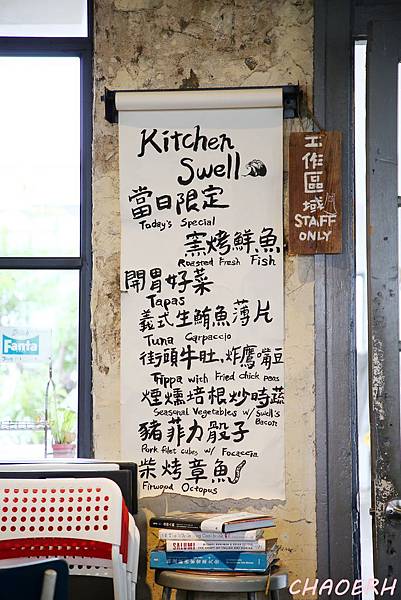 Kitchen
Swell
當日限定
Today's Special
窯烤鮮魚
Roasted Fresh Fish
開胃好菜
Tapas
義式生鮪魚薄片
Tuna Carpaccio
街頭牛肚,炸鷹嘴豆
Trippa with Fried chick peas
煙燻培根炒時蔬
Seasonal Vegetables w/ Swell's
Bacon
豬菲力骰子
Pork filet cubes w/ Focaccia
柴烤章魚
Firwood Octopus
工作區域
STAFF
ONLY
Fanta
SALUMI
CHAOERH